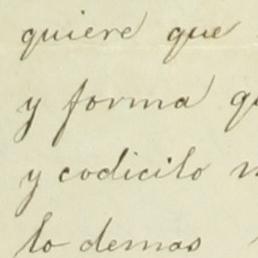 quiere que
y forma q
y codicilo
lo demas